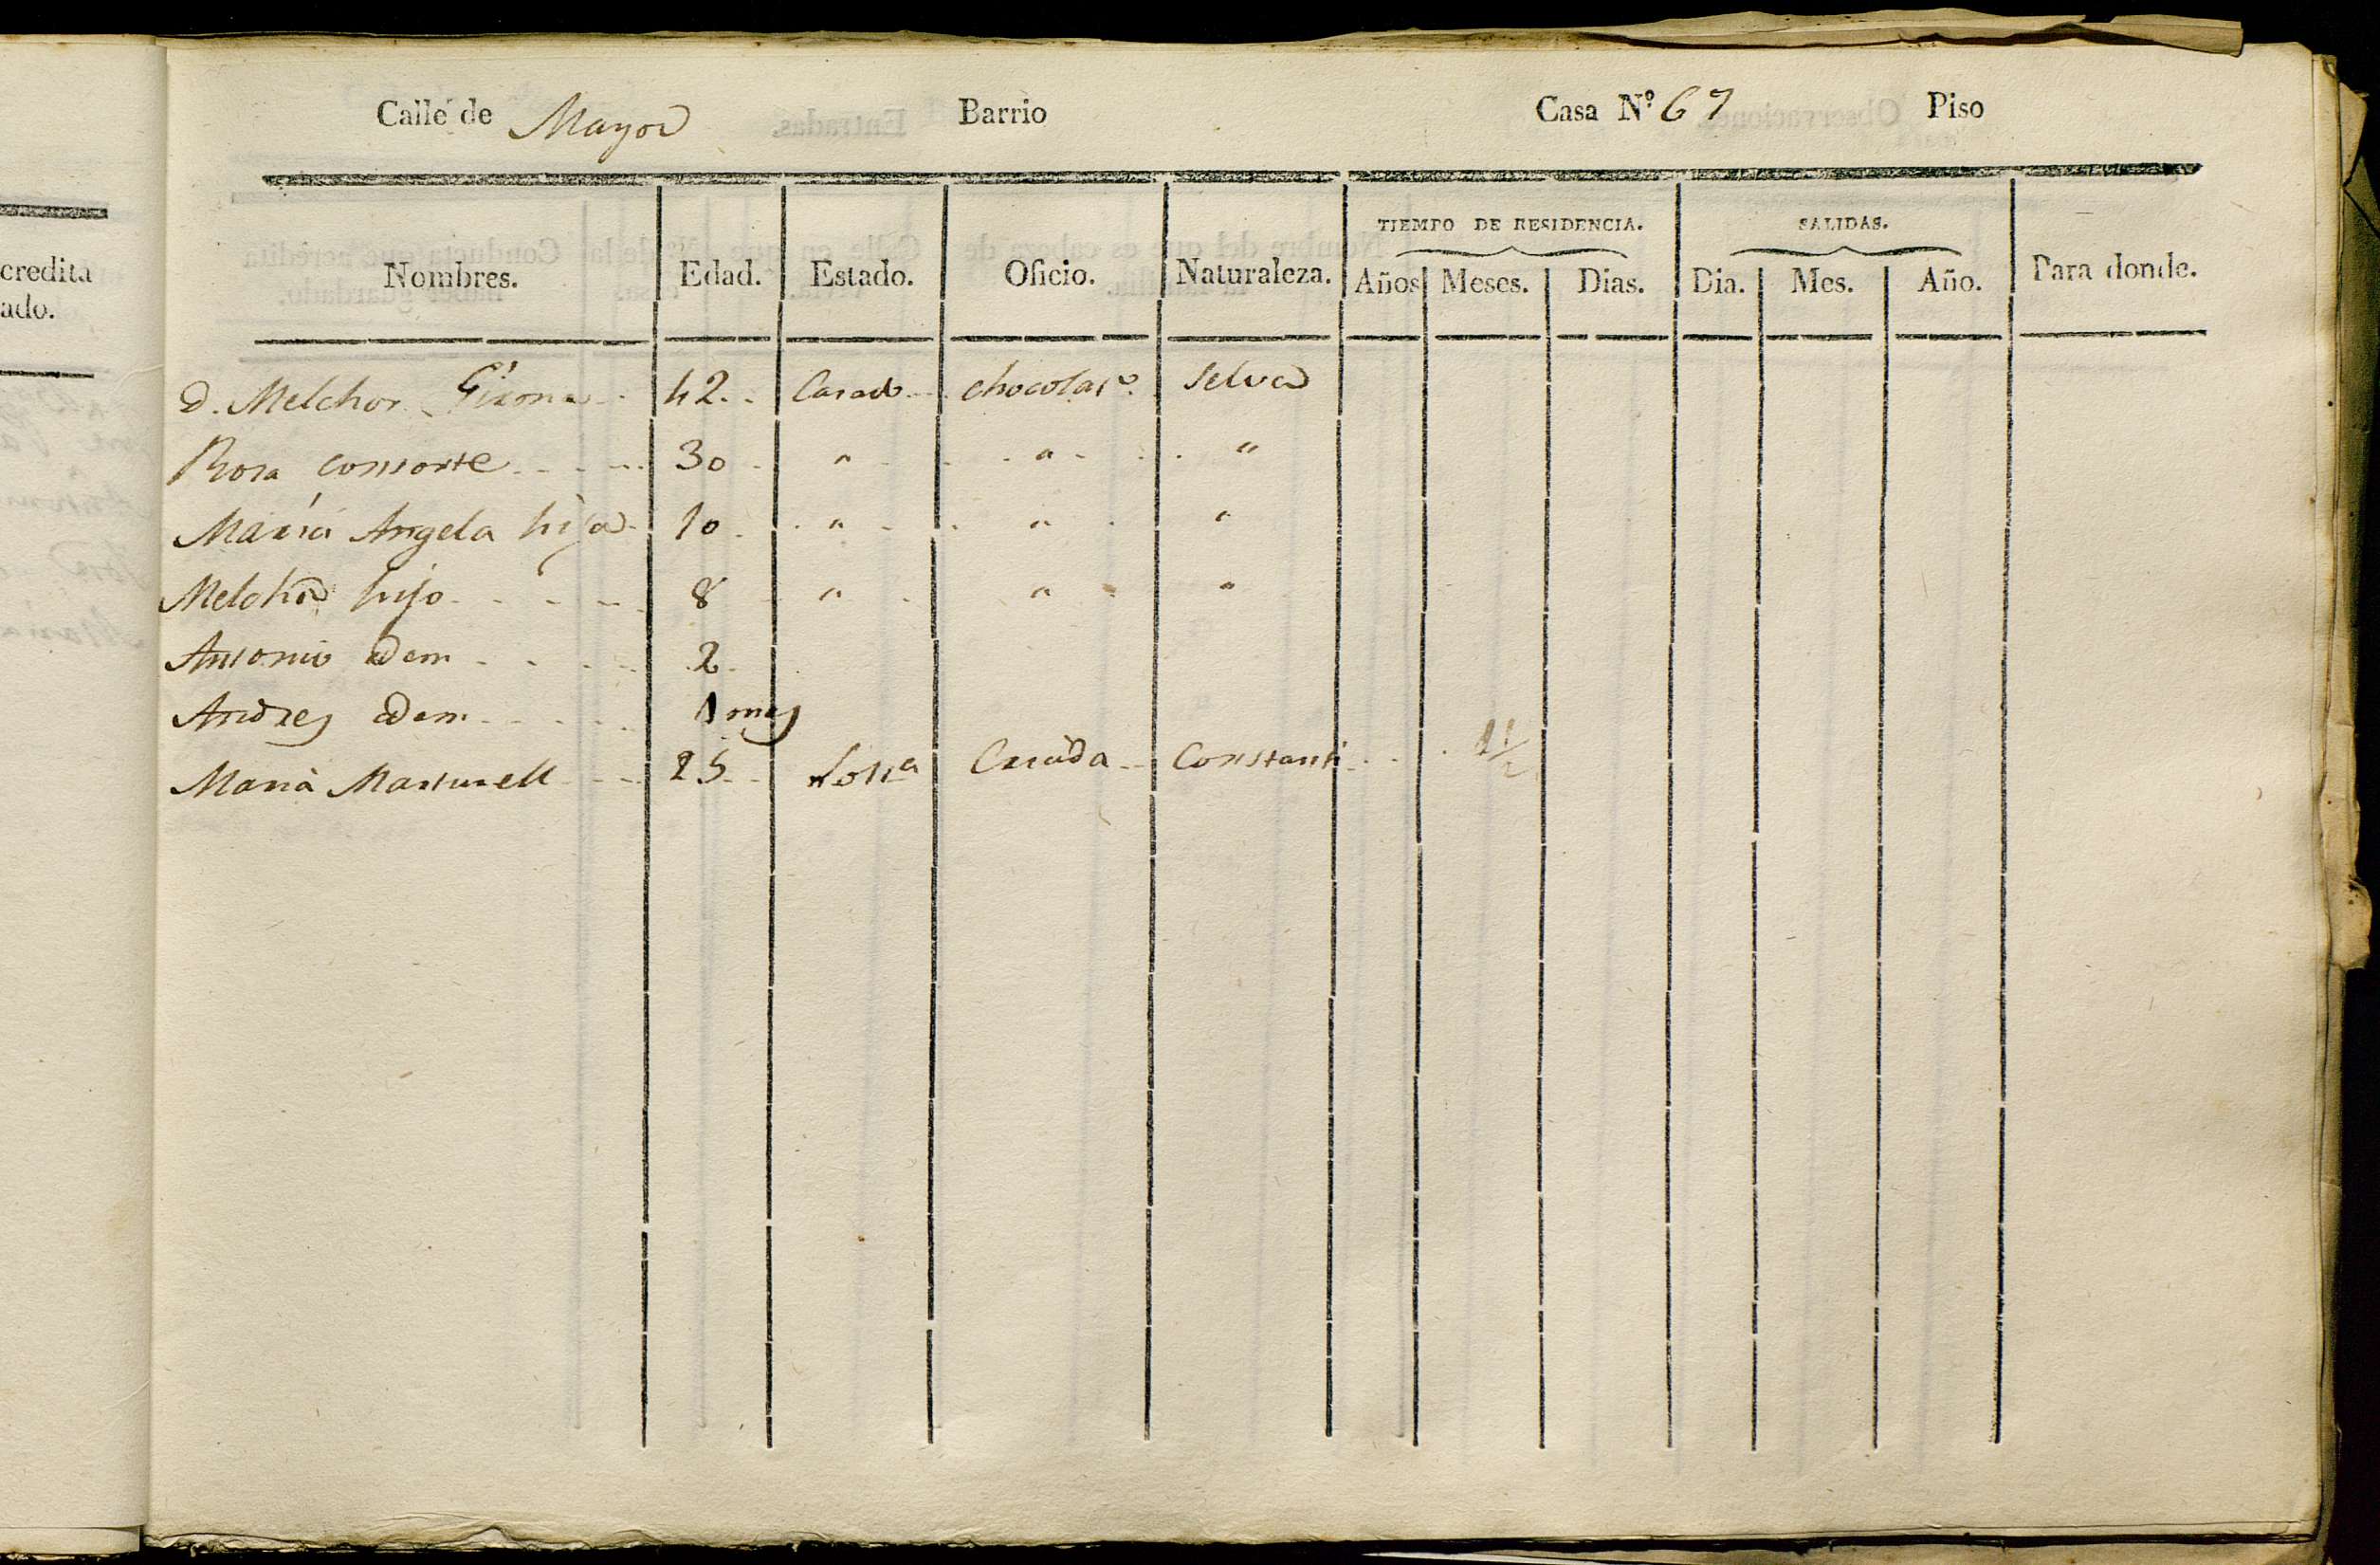 Calle de Mayor Barrio Casa Nº 67 Piso
TIEMPO DE RESIDENCIA. SALIDAS.
credita
ado.
Nombres. Edad. Estado. Oficio. Naturaleza. Años Meses. Dias. Dia. Mes. Año. Para donde.
D. Melchor Girona 42 Casado chocolatº Selva
Rosa consorte 30 " " "
Maria Angela hija 10 " " "
Melchor hijo 8 " " "
Antonio idem 2
Andres idem 1 mes
Maria Marturell 25 Solta Criada Constanti 1 1/2